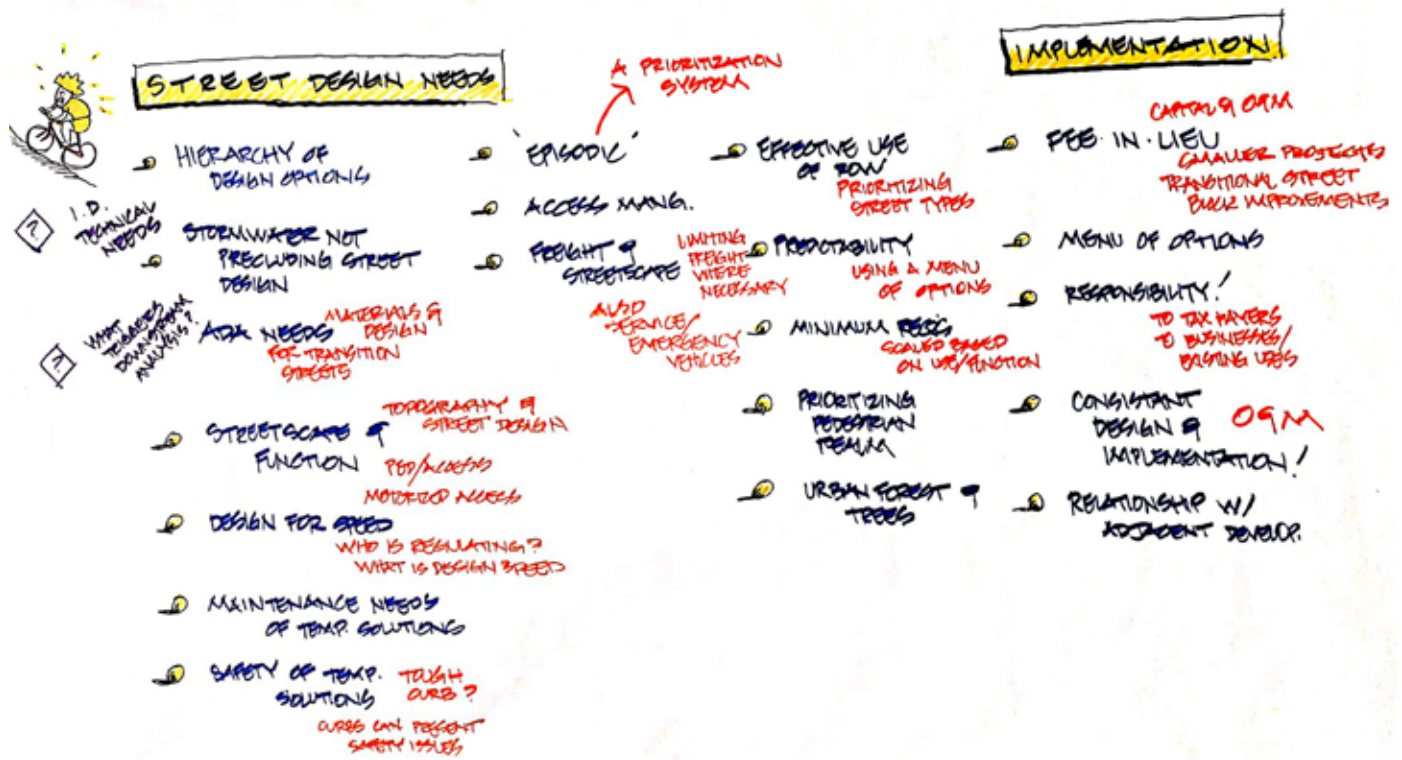 STREET DESIGN NEEDS
HIERARCHY OF
DESIGN OPTIONS
?
I.D.
TECHNICAL
NEEDS
STORMWATER NOT
PRECLUDING STREET
DESIGN
?
WHAT
TRIGGERS
DOWNSTREAM
ANALYSIS?
ADA NEEDS
MATERIALS &
DESIGN
FOR TRANSITION
STREETS
STREETSCAPE &
FUNCTION
TOPOGRAPHY &
STREET DESIGN
PED/ACCESS
MOTORIZED ACCESS
DESIGN FOR SPEED
WHO IS REGULATING?
WHAT IS DESIGN SPEED
MAINTENANCE NEEDS
OF TEMP. SOLUTIONS
SAFETY OF TEMP.
SOLUTIONS
TOUGH
CURB?
CURBS CAN PRESENT
SAFETY ISSUES
'EPISODIC'
A PRIORITIZATION
SYSTEM
ACCESS MANG.
FREIGHT &
STREETSCAPE
LIMITING
FREIGHT
WHERE
NECESSARY
ALSO
SERVICE/
EMERGENCY
VEHICLES
EFFECTIVE USE
OF ROW
PRIORITIZING
STREET TYPES
PREDCTABILITY
USING A MENU
OF OPTIONS
MINIMUM
SCALED BASED
ON USE/FUNCTION
PRIORITIZING
PEDESTRIAN
REALM
URBAN FOREST &
TREES
IMPLEMENTATION
FEE-IN-LIEU
CAPITAL & O&M
SMALLER PROJECTS
TRANSITIONAL STREET
IMPROVEMENTS
MENU OF OPTIONS
RESPONSIBILITY!
TO TAX PAYERS
TO BUSINESSES/
EXISTING USES
CONSISTANT
DESIGN &
IMPLEMENTATION!
O&M
RELATIONSHIP W/
ADJACENT DEVELOP.